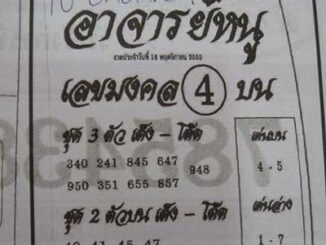 อาจารย์หนู
งวดประจำวันที่ 16 พฤศจิกายน 2553
เลขมงคล 4 บน
ชุด 3 ตัว เต็ง - โต๊ด
เด่นบน
340 241 845 647
948
4 - 5
950 351 655 857
ชุด 2 ตัวบน เต็ง - โต๊ด
เด่นล่าง
1 - 7